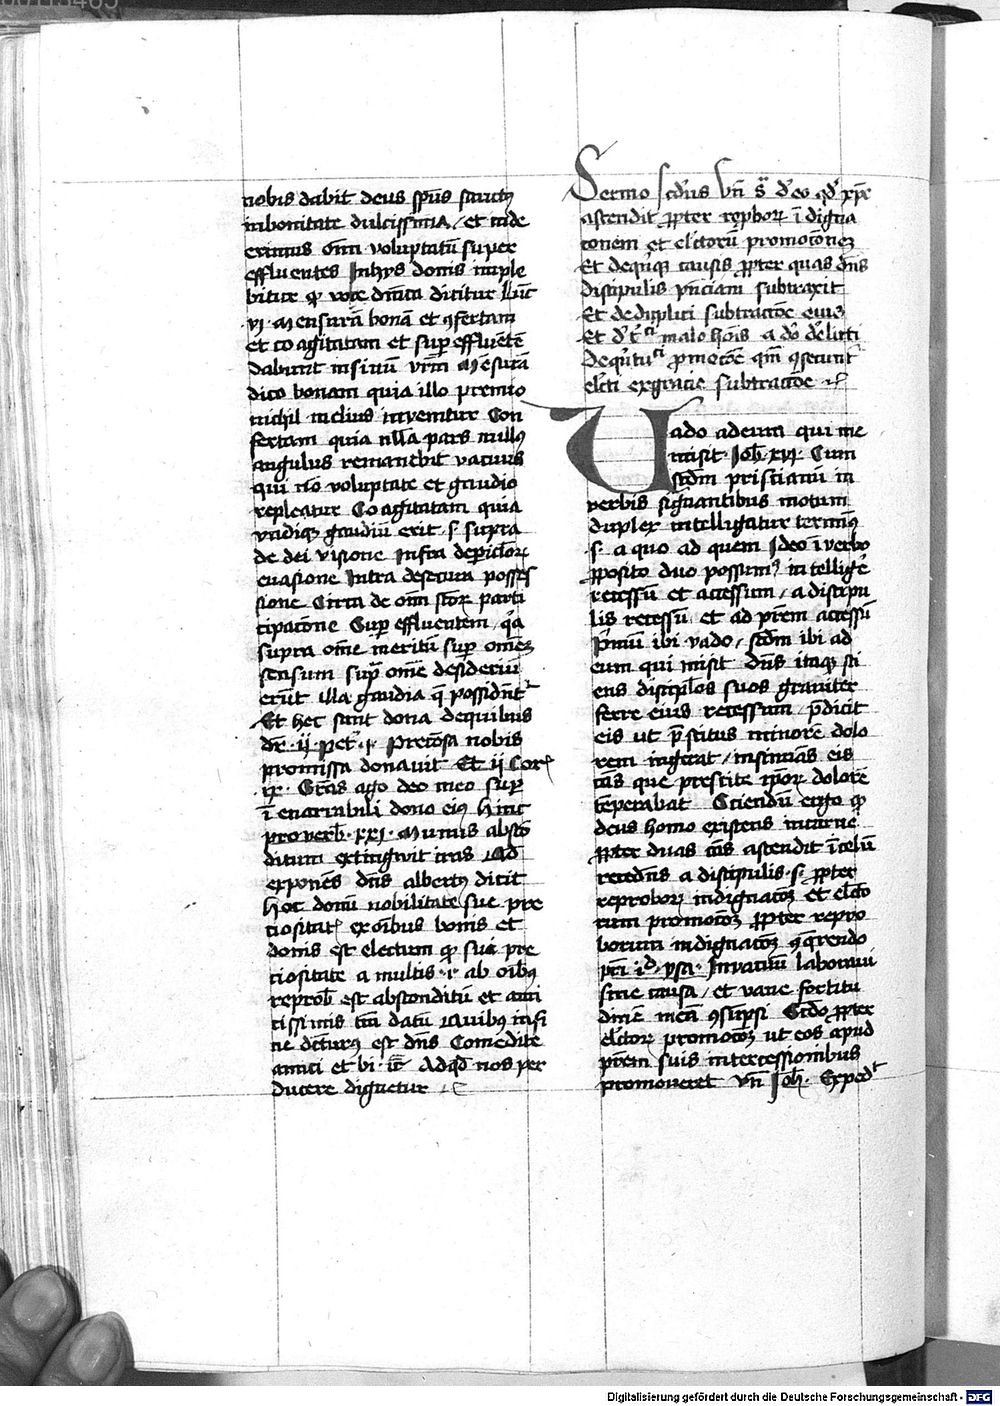 nobis dabit deus sp̄us sanctꝰ
inbonitate dulcissima / et inde
erimus om̄i voluptatū super
effluentes Inhys donis imple
bitur ꝙ voce dn̄ica dicitur Luc̄
vj · Mensurā bonā et ꝯfertam
et co agitatam et suꝑ effluētē
dabunt insinū vr̄m Mēsurā
dico bonam quia illo premio
nichil melius invenitur Con
fertam quia nlla pars nullꝰ
angulus remanebit vacuus
qui nō voluptate et gaudio
repleatur Co agitatam quia
vndiqꝫ gaudiū erit · s · supra
de dei visione Infra deꝑiclorꝫ
euasione Intra desecura posses
sione Circa de om̄i stōrꝫ parti
cipacōne Suꝑ effluentem qa
supra om̄e meritū suꝑ om̄eꝫ
sensum supͣ om̄e desideriū
erūt illa gaudia q̄ possidn̄t
Et hec sunt dona dequibus
dr̄ · ij · pet̄ · j · preciōsa nobis
promissa donauit Et ij Corꝫ
ix · Gr̄as ago deo meo suꝑ
ī enarrabili dono eiꝰ hinc
proverb̄ · xxj · Munus abscō
ditum extingwit iras Ad
exponēs dn̄s albertꝰ dicit
Hoc donū nobilitate sue pre
ciositatꝫ exōibus bonis et
donis est electum ꝙ sui pre
ciositate a multis · i · ab oībꝰ
reprob̄ est absconditū et ami
cissimis tm̄ datū Quibus in fi
ne dictūrus est dn̄s Comedite
amici et bi · kr̄ Adqd̄ nos per
ducere dignetur
Sermo scd̄us vn̄ s̄ d̓ eo qd̓ xp̄c
ascendit ꝓpter rephorꝫ ī digna
conem et el̄corū promocōneꝫ
Et dequīqꝫ causis ꝓpter quas dn̄s
discipulis pn̄ciam subtraxit
Et de duplici subtraccōe eius
Et d̓ malo hoīs a dō d̓elicti
promocōe qm̄ ꝯsecunt̄
el̄cti exgracie subtraccōe
Uado adeum qui me
misit · Joh̄ · xvj · Cum
scd̄m priscianū in
verbis signantibus motum
duplex intelligatur terminꝰ
· s · a quo ad quem Ideo ī verbo
ꝓposito duo possumꝰ intellige̓
recessū et accessum / a discipu
lis recessū et ad pr̄em accessū
pͥmū ibi vado / scd̄m ibi ad
eum qui misit Dn̄s itaqꝫ sci
ens discipl̄os suos grauiter
ferre eius recessum / p̄dicit
eis ut p̄ scitus minorē dolo
rem ingerat / insinuās eis
cās que prescite ipōrꝫ dolorē
teperabat Sciendū ergo ꝙ
deus homo existens incarne
ꝓpter duas cās ascendit īcelū
recedn̄s a discipulis · s · ꝓpter
reproborꝫ indignacōꝫ et el̄cto
rum promocōꝫ ꝓpter repro
borum indignacōꝫ ꝯq̄rendo
pr̄i · Inuacuū laboraui
sine causa / et vane fortitu
dinē meā ꝯsūpsi Scd̄o ꝓpter
el̄ctorꝫ promocōꝫ ut eos apud
pr̄em suis intercessionibus
promoueret vn̄ Joh̄ · Exped̄t
Digitalisierung gefördert durch die Deutsche Forschungsgemeinschaft - DFG